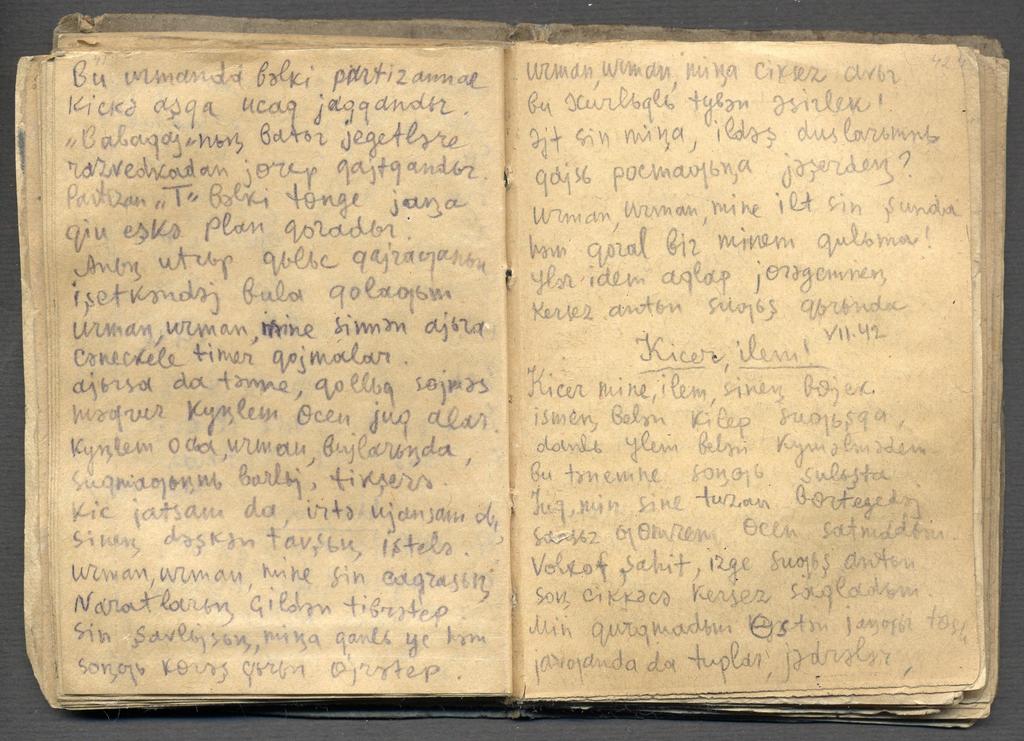 Bu urmanda bəlki partizannar
Kickə aşqa ucaq jaqqandьr.
„Babaqaj"-nьꞑ batьr jegetləre
razvedkadan jɵrep qajtqandьr.
Partizan „T" bəlki tɵnge jaꞑa
qiu eşkə plan qoradьr.
Anьꞑ utrьp qьlьc qajraqanьn
işetkəndəj bula qolaqьm
urman, urman, mine sinnən ajьra
cəneckele timer qojmalar.
ajьrsa da tənne, qollьq sɵjməs
məqrur kyꞑlem ɵcen juq alar.
Kyꞑlem oca, urman, bujlarьꞑda,
suqmaqьꞑnь barlьj, tikşerə.
Kic jatsam da, irtə ujansam da,
sineꞑ dəşkən tavşьꞑ iştelə.
urman, urman, mine sin caqrasьꞑ,
Naratlarьꞑ çildən tibrətep
sin şavlьjsьꞑ, miꞑa qanlь yc həm
soꞑqь kɵrəş çьrьn ɵjrətep.
urman, urman, miꞑa ciksez avьr
bu xurlьqlь tɵbən əsirlek!
Əjt sin miꞑa, ildəş duslarьmnь
qajsь pocmaqьꞑa jəşerdeꞑ?
urman, urman, mine ilt sin şunda
həm qoral bir minem qulьma!
Ylər idem aqlap jɵrəgemneꞑ
Kersez antьn suqьş qьrьnda
VII.42
Kicer, ilem!
Kicer mine, ilem, sineꞑ bɵjek
ismeꞑ belən kitep suqьşqa,
danlь ylem belən kymmədem
bu tənemne soꞑqь sulьşta
Juq, min sine tuzan bɵrtegedəj
sansьz qomrem ɵcen satmadьm.
Volxof şahit, izge suqьş antьn
soꞑ cikkəcə kersez saqladьm.
Min qurqmadьm ɵstən jaꞑqьr təsle
javqanda da tuplar, jədrələr,